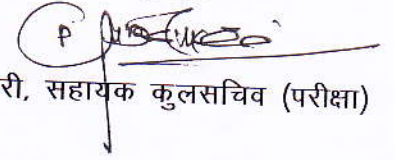 री, सहायक कुलसचिव (परीक्षा)